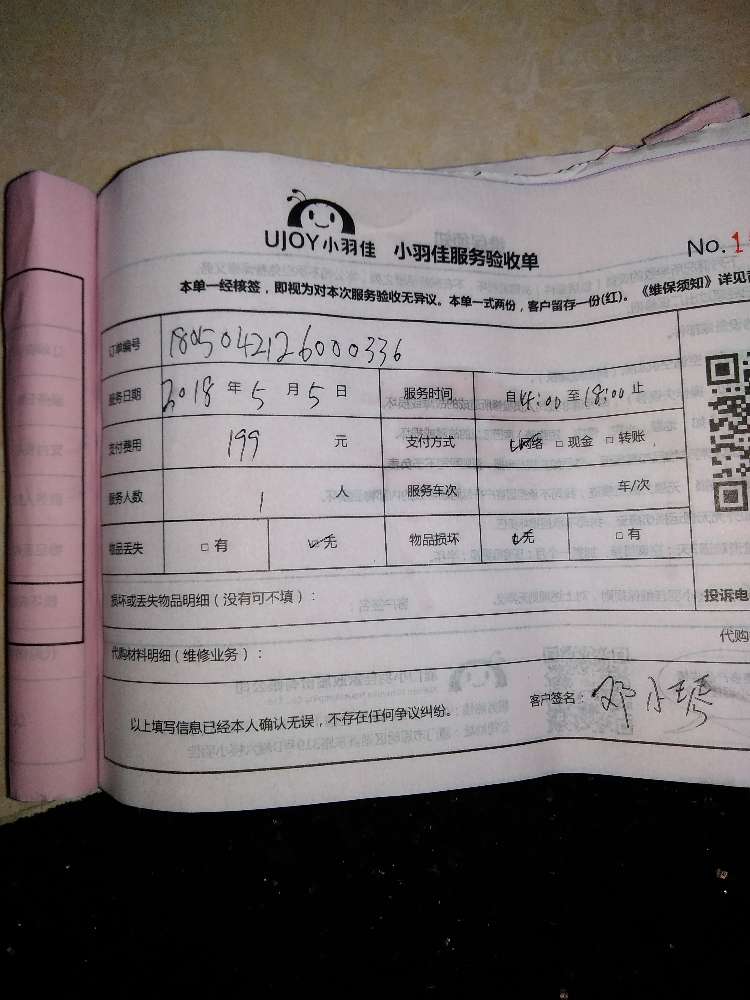 UJOY小羽佳 小羽佳服务验收单 No.1
本单一经核签，即视为对本次服务验收无异议。本单一式两份，客户留存一份(红)。《维保须知》详见
订单编号 1805042126000336
服务日期 2018 年 5 月 5 日 服务时间 自 14:00 至 18:00 止
支付费用 199 元 支付方式 网络 □ 现金 □ 转账
服务人数 1 人 服务车次 车/次
物品丢失 □ 有 无 物品损坏 无 □ 有
损坏或丢失物品明细（没有可不填）： 投诉电
代购材料明细（维修业务）： 代购
以上填写信息已经本人确认无误，不存在任何争议纠纷。 客户签名：邓小琴